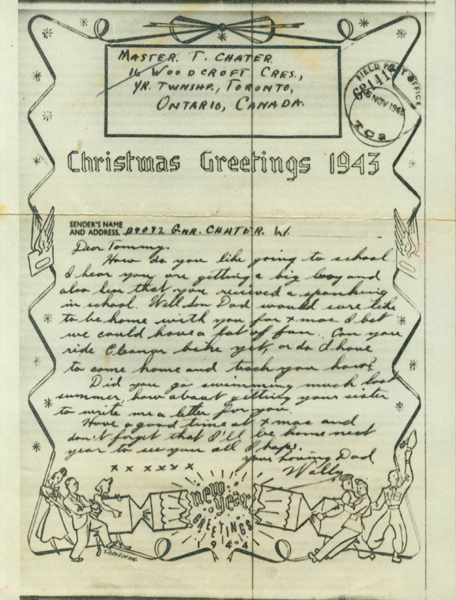 MASTER. T. CHATER.
16 WOODCROFT CRES.,
YK. TWNSHP., TORONTO,
ONTARIO, CANADA.
FIELD POST OFFICE
NOV 1943
Christmas Greetings 1943
SENDER'S NAME
AND ADDRESS. GNR. CHATER. W.
Dear Tommy.
How do you like going to school
I hear you are getting a big boy and
also hear that you received a spanking
in school. Well son Dad would sure like
to be home with you for xmas I bet
we could have a lot of fun. Can you
ride Eleanor bike yet, or do I have
to come home and teach you how?
Did you go swimming much last
summer, how about getting your sister
to write me a letter for you.
Have a good time at xmas and
don't forget that I'll be home next
year to see you all I hope.
Your loving Dad
Willy
x x x x x x
new year
GREETINGS
1944